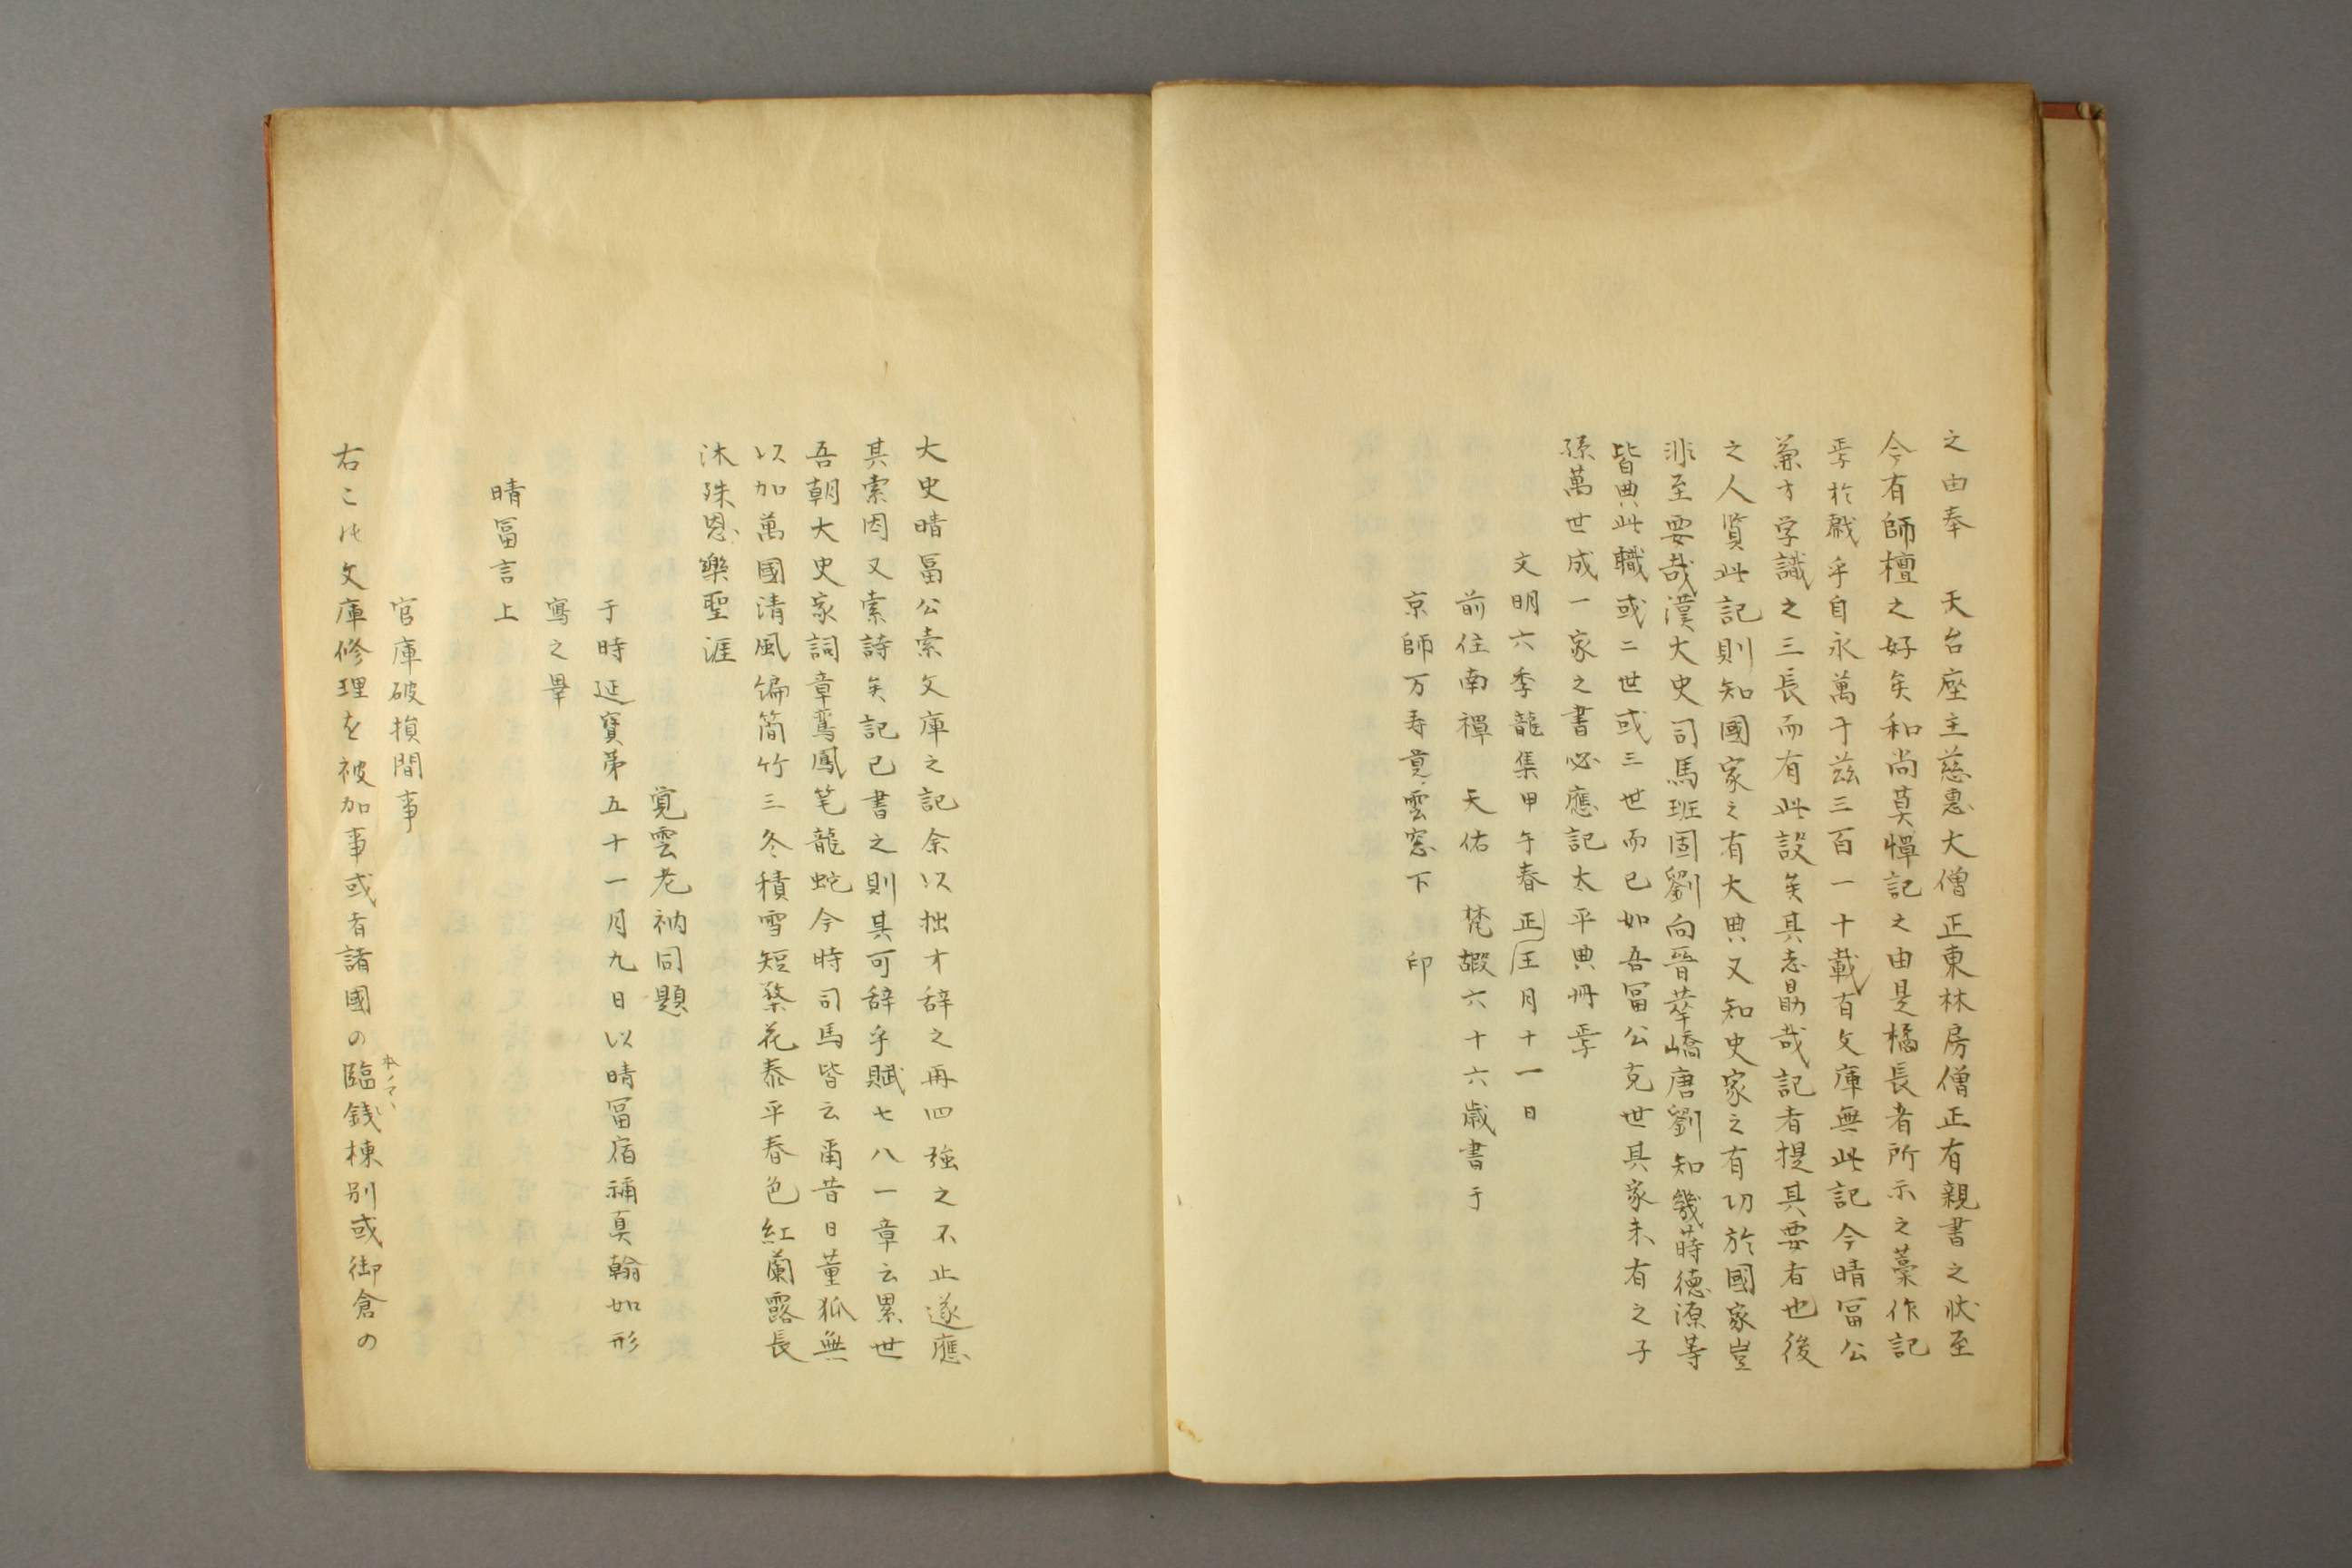 之由奉　天台座主慈惠大僧正東林房僧正有親書之状至
今有師檀之好矣和尚莫憚記之由是橘長者所示之藁作記
焉於戯乎自永萬于茲三百一十載有文庫無此記今晴冨公
兼才学識之三長而有此設矣其志勗哉記者提其要者也後
之人質此記則知國家之有大典又知史家之有功於國家豈
非至要哉漢大史司馬班固劉向晉華嶠唐劉知幾蒋徳源等
皆典此職或二世或三世而已如吾冨公克世其家未有之子
孫萬世成一家之書必應記太平典冊焉
文明六季龍集甲午春正王月十一日
前住南禪　天佑　梵嘏六十六歳書于
京師万寿莫雲窓下　印
大史晴冨公索文庫之記余以拙才辞之再四強之不止遂應
其索因又索詩矣記已書之則其可辞乎賦七八一章云累世
吾朝大史家詞章鸞鳳笔龍蛇今時司馬皆云爾昔日董狐無
以加萬國清風編簡竹三冬積雪短檠花泰平春色紅蘭露長
沐殊恩樂聖涯
覚雲老衲同題
于時延寳第五十一月九日以晴冨宿祢真翰如形
寫之畢
晴冨言上
官庫破損間事
右こ比文庫修理を被加事或者諸國の臨錢棟別或御倉の